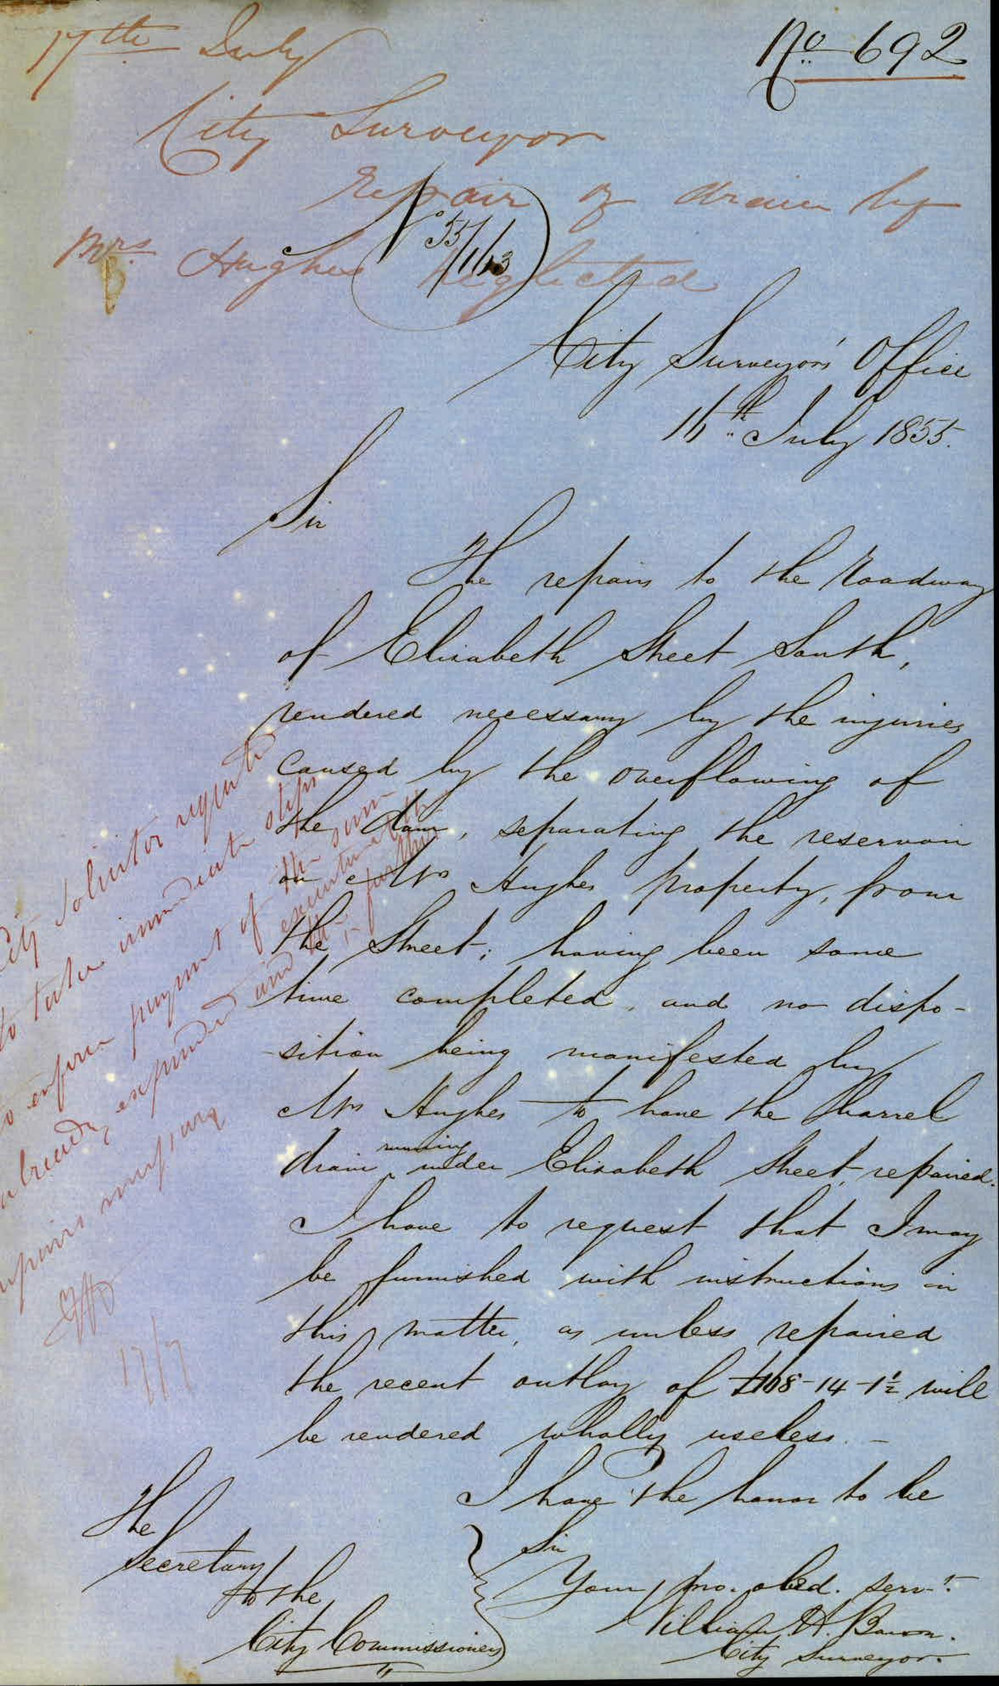 17th July
No 692
City Surveyor
Repair of drain by
Mrs Hughes neglected
No 55/1/13
City Surveyors' Office
16th July 1855.
Sir
The repairs to the Roadway
of Elizabeth Street South,
rendered necessary by the injuries
caused by the overflowing of
the dam, separating the reservoir
on Mrs Hughes property, from
the Street; having been some
time completed, and no dispo-
sition being manifested by
Mrs Hughes to have the barrel
drain running under Elizabeth Street, repaired.
I have to request that I may
be furnished with instructions in
this matter, as unless repaired
the recent outlay of £168-14-1½ will
be rendered wholly useless. –
I have the honor to be
Sir
Your mo. obed. servt.
William H. Baron.
City Surveyor.
The
Secretary
to the
City Commissioners
City Solicitor requested
to take immediate steps
to enforce payment of the sum
already expended and
repairs necessary
17/7